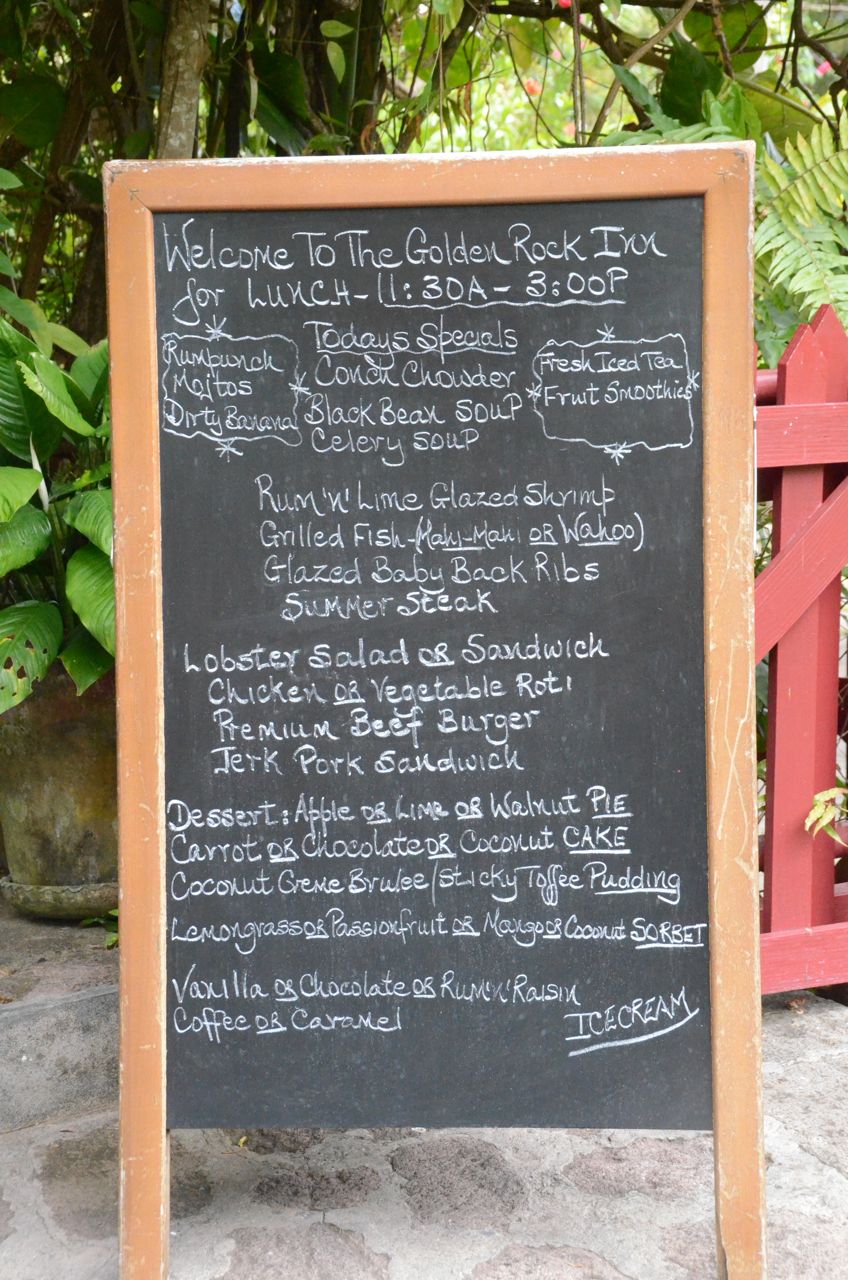 Welcome To The Golden Rock Inn
for LUNCH - 11:30A - 3:00P
Todays Specials
Rumpunch
Mojitos
Dirty Banana
Conch Chowder
Black Bean Soup
Celery Soup
Fresh Iced Tea
Fruit Smoothies
Rum 'n' Lime Glazed Shrimp
Grilled Fish - (Mahi-Mahi OR Wahoo)
Glazed Baby Back Ribs
Summer Steak
Lobster Salad OR Sandwich
Chicken OR Vegetable Roti
Premium Beef Burger
Jerk Pork Sandwich
Dessert: Apple OR Lime OR Walnut PIE
Carrot OR Chocolate OR Coconut CAKE
Coconut Creme Brulee/Sticky Toffee Pudding
Lemongrass OR Passionfruit OR Mango OR Coconut SORBET
Vanilla OR Chocolate OR Rum 'n' Raisin
Coffee OR Caramel ICECREAM